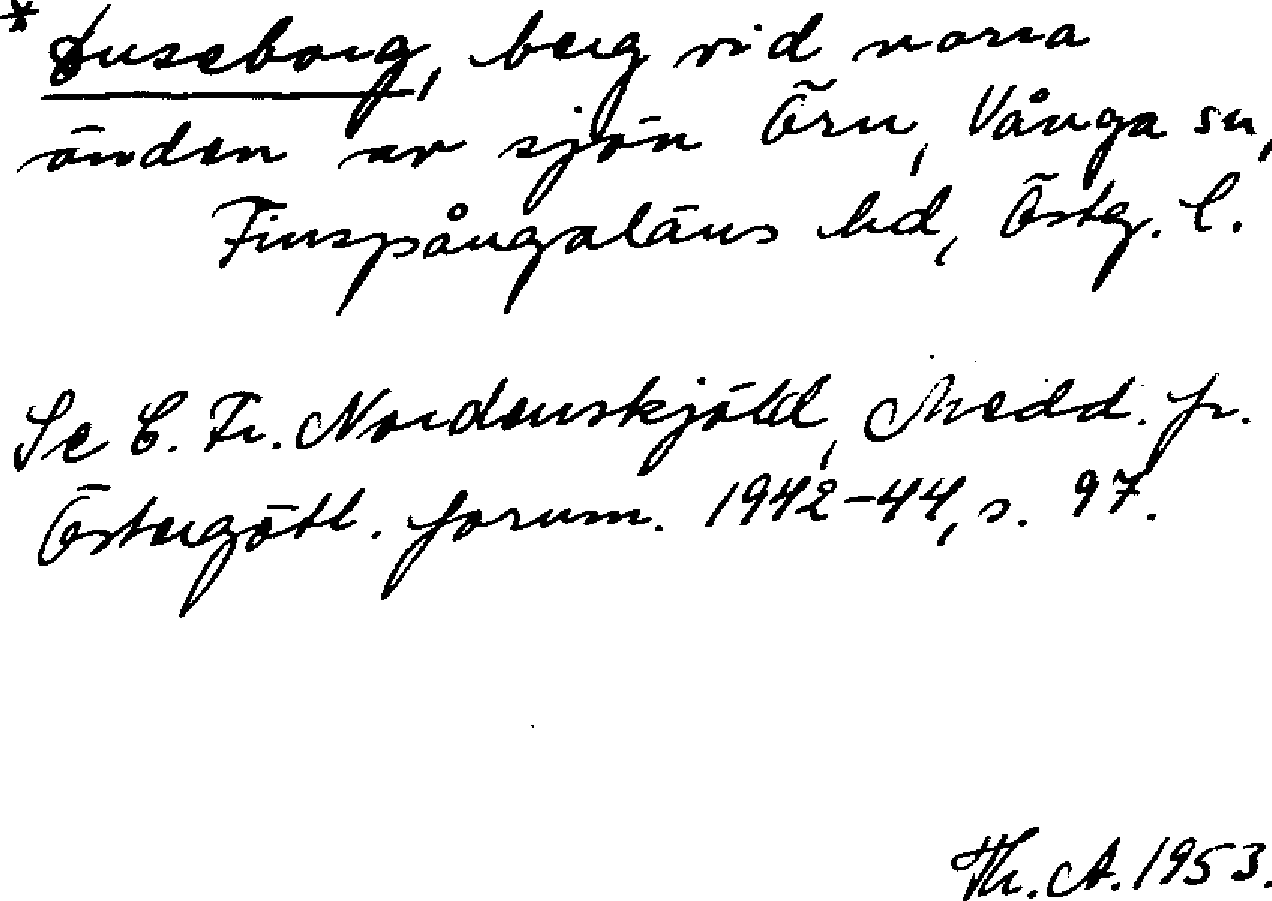 * Duseborg, berg vid norra
änden av sjön Örn, Vånga sn,
Finspångaläns hd, Östg. l.
Se C. Fr. Nordenskjöld, Medd. fr.
Östergötl. fornm. 1942-44, s. 97.
Th. A. 1953.